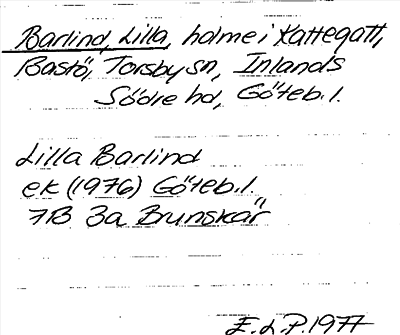 Barlind, Lilla, holme i Kattegatt,
Bastö, Torsby sn, Inlands
Södre hd, Göteb. l.
Lilla Barlind
ek (1976) Göteb. l.
7B 3a Brunskär
E.L.P. 1977